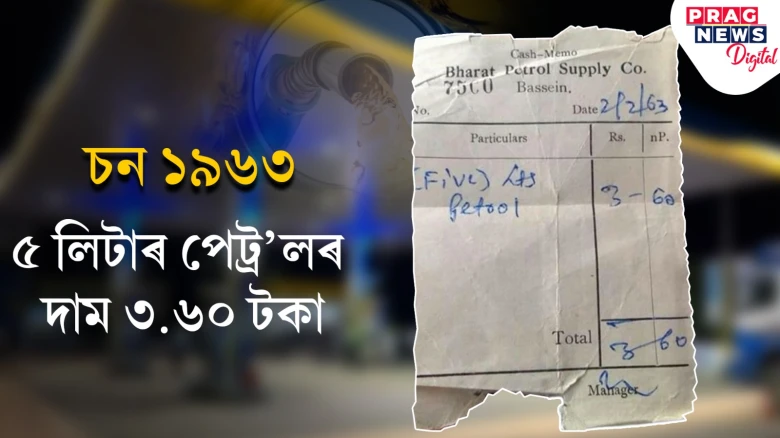 PRAG
NEWS
Digital
চন ১৯৬৩
৫ লিটাৰ পেট্ৰ'লৰ
দাম ৩.৬০ টকা
Cash-Memo
Bharat Petrol Supply Co.
7500 Bassein.
No. Date 2/2/63
Particulars Rs. nP.
(Five) Lts 3 - 60
Petrol
Total 3 60
Manager